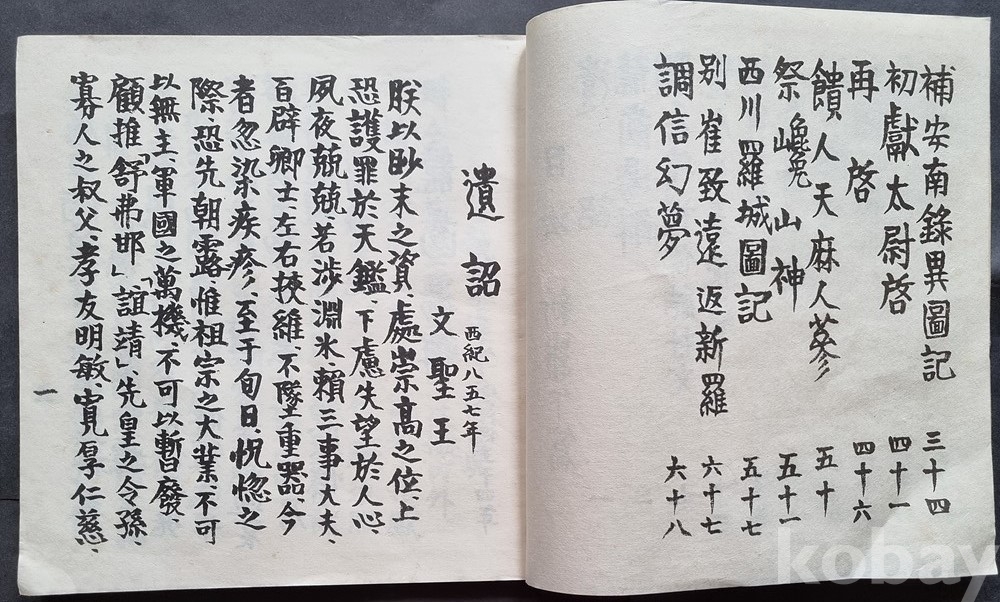 補安南錄異圖記 三十四
初獻太尉啓 四十一
再啓 四十六
饋人天麻人蔘 五十
祭巉山神 五十一
西川羅城圖記 五十七
別崔致遠返新羅 六十七
調信幻夢 六十八
遺詔 西紀八五七年
文聖王
朕以眇末之資、處崇高之位、上
恐護罪於天鑑、下慮失望於人心、
夙夜兢兢、若涉淵氷、賴三事大夫、
百辟卿士左右挾維、不墜重器、今
者忽染疾疹、至于旬日、怳惚之
際、恐先朝露、惟祖宗之大業、不可
以無主、軍國之萬機、不可以暫廢、
顧推「舒弗邯」「誼靖」、先皇之令孫、
寡人之叔父、孝友明敏、寬厚仁慈、
一
kobay